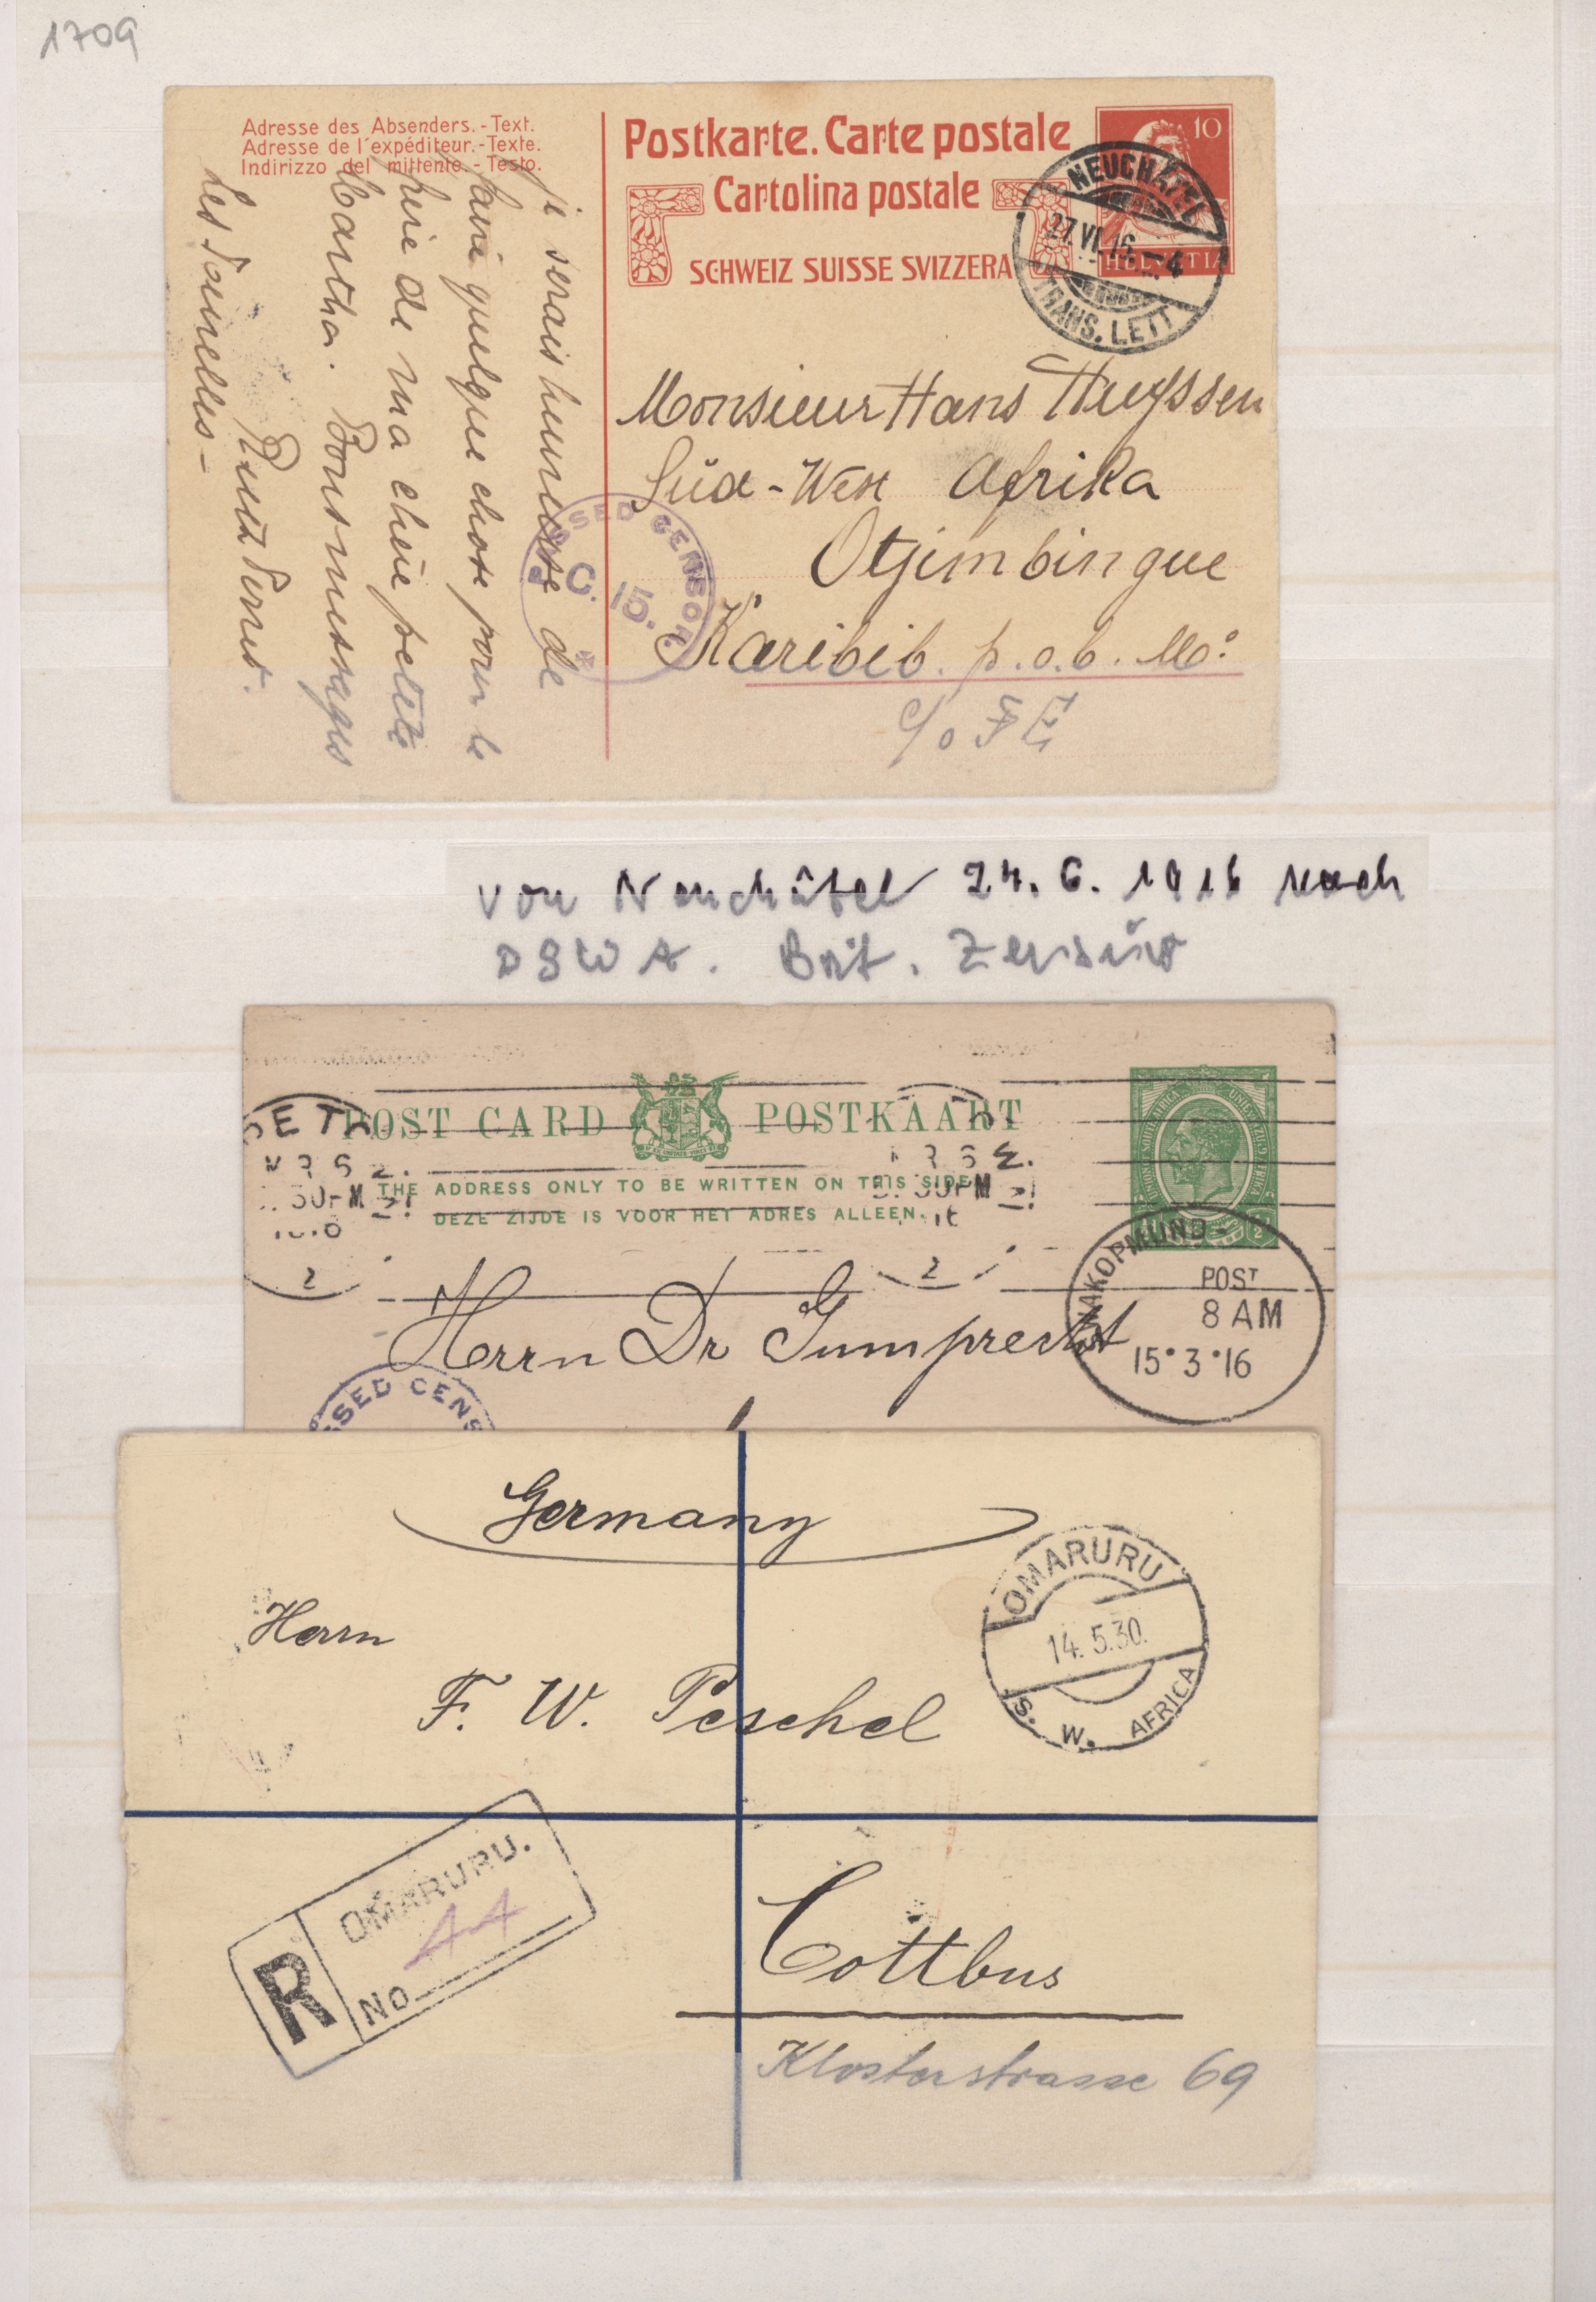 1709
Adresse des Absenders.-Text.
Adresse de l'expéditeur.-Texte.
Indirizzo del mittente.-Testo.
Postkarte. Carte postale
Cartolina postale
SCHWEIZ SUISSE SVIZZERA
10
HELVETIA
NEUCHATEL
27.VI.16.–4
TRANS. LETT
je serais heureuse de
faire quelque chose pour le
père de ma chère petite
Martha. Bons messages
Les Tourelles –
Monsieur Hans
Süd-West Afrika
Otjimbingue
Karibib. p.o.b.
c/o
PASSED CENSOR
C. 15.
von Neuchâtel 24.6.1916 nach
DSWA. Brit. Zensur
POST CARD POSTKAART
THE ADDRESS ONLY TO BE WRITTEN ON THIS SIDE
DEZE ZIJDE IS VOOR HET ADRES ALLEEN.
2
2
SWAKOPMUND
POST
8 AM
15·3·16
Herrn Dr Gumprecht
SSED CENS
Germany
Herrn
F. W. Peschel
OMARURU
14.5.30.
S. W. AFRICA
R
OMARURU.
No
44
Cottbus
Klosterstrasse 69